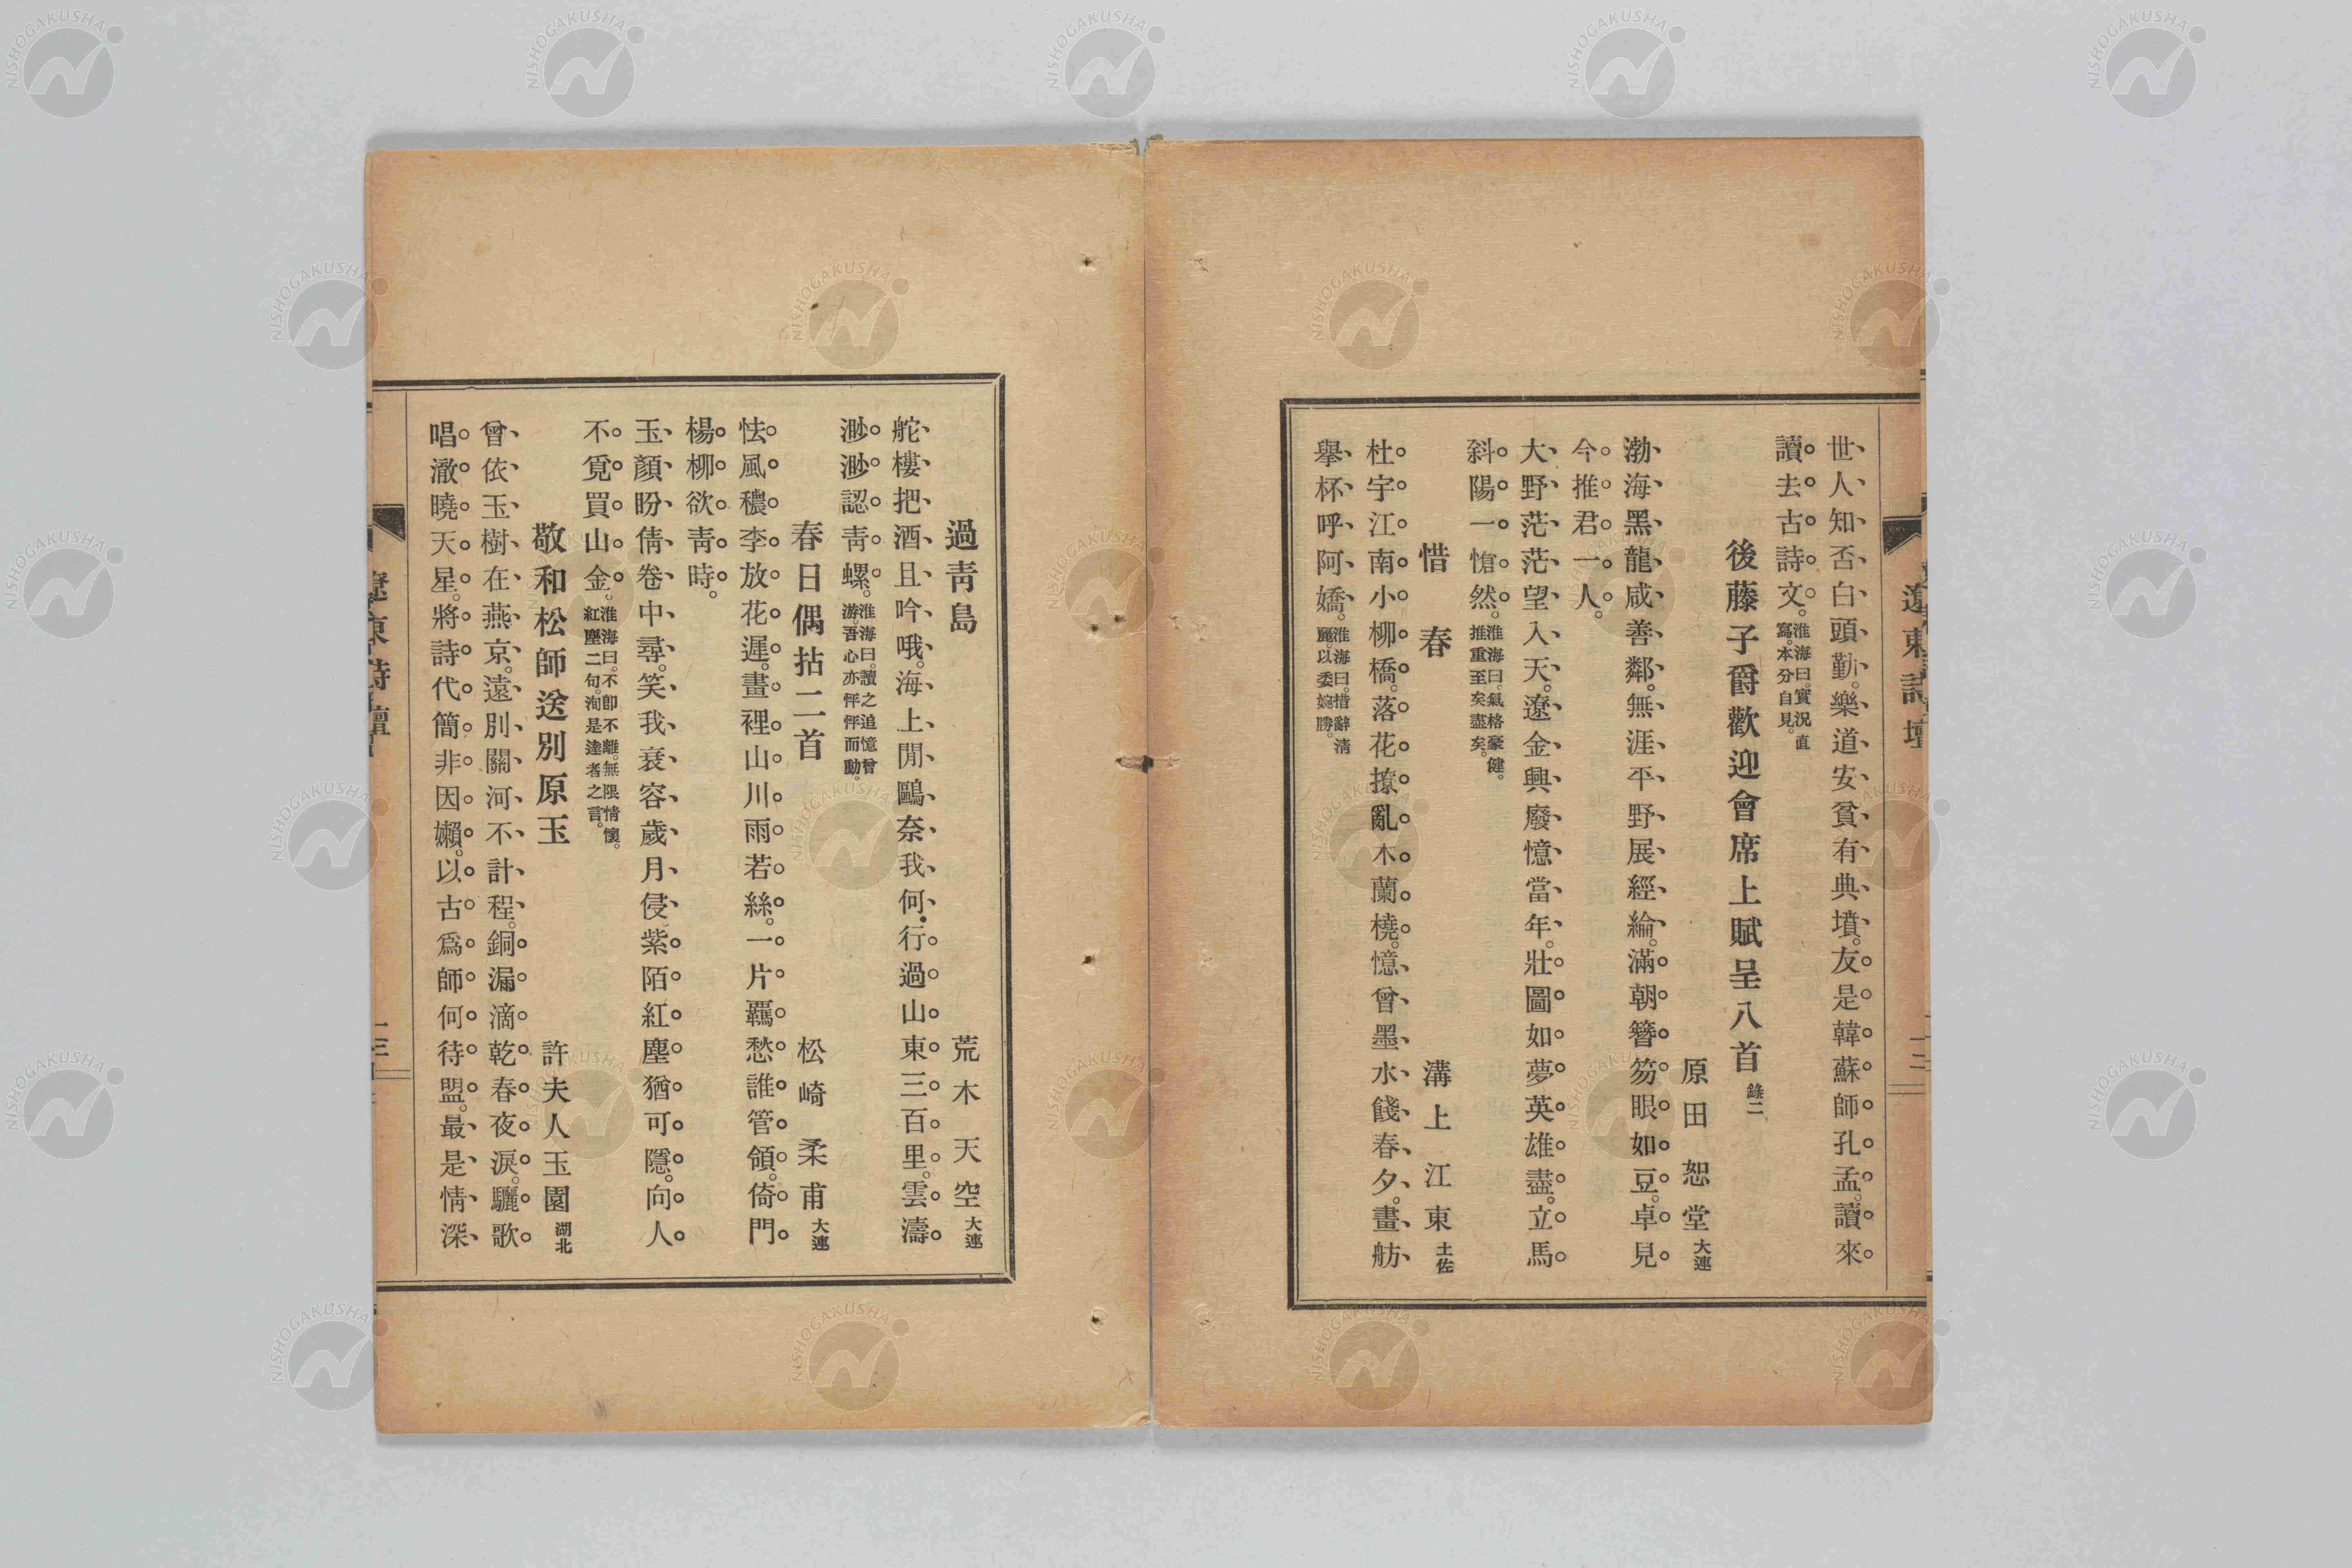 世人知否白頭勤。樂道安貧有典墳。友是韓蘇師孔孟。讀來
讀去古詩文。淮海曰。實況直
寫。本分自見。
後藤子爵歡迎會席上賦呈八首 錄二
原田恕堂 大連
渤海黑龍咸善鄰。無涯平野展經綸。滿朝簪笏眼如豆。卓見
今推君一人。
大野茫茫望入天。遼金興廢憶當年。壯圖如夢英雄盡。立馬
斜陽一愴然。淮海曰。氣格豪健。
推重至矣盡矣。
惜春 溝上江東 土佐
杜宇江南小柳橋。落花撩亂木蘭橈。憶曾墨水餞春夕。畫舫
擧杯呼阿嬌。淮海曰。措辭淸
麗。以委婉勝。
過靑島 荒木天空 大連
舵樓把酒且吟哦。海上閒鷗奈我何。行過山東三百里。雲濤
渺渺認靑螺。淮海曰。讀之追憶曾
游。吾心亦怦怦而動。
春日偶拈二首 松崎柔甫 大連
怯風穠李放花遲。晝裡山川雨若絲。一片羈愁誰管領。倚門
楊柳欲靑時。
玉顏盼倩卷中尋。笑我衰容歲月侵。紫陌紅塵猶可隱。向人
不覓買山金。淮海曰。不卽不離。無限情懷。
紅塵二句。洵是達者之言。
敬和松師送別原玉 許夫人玉園 湖北
曾依玉樹在燕京。遠別關河不計程。銅漏滴乾春夜淚。驪歌
唱澈曉天星。將詩代簡非因嬾。以古爲師何待盟。最是情深
遼東詩壇
遼東詩壇
NISHOGAKUSHA